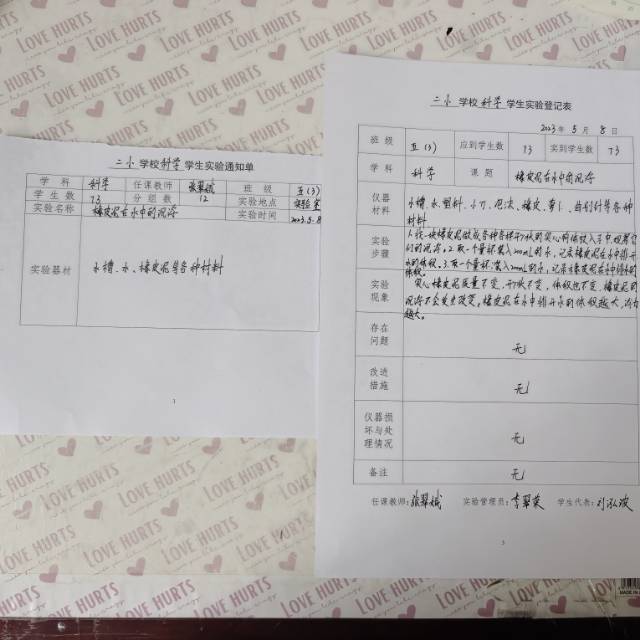 LOVE HURTS
二小学校科学学生实验通知单
学科 科学 任课教师 班级 五(3)
学生数 73 分组数 12 实验地点 实验室
实验名称 橡皮泥在水中的沉浮 实验时间 2023.5.8
实验器材 水槽、水、橡皮泥等各种材料
1
二小学校科学学生实验登记表
2023年5月8日
班级 五(3) 应到学生数 73 实到学生数 73
学科 科学 课题 橡皮泥在水中的沉浮
仪器材料 水槽、水、塑料、小刀、泡沫、橡皮、萝卜、曲别针等各种
材料
实验步骤 1.找一块橡皮泥做成各种各样形状的实心物体放入水中,观察它
们的沉浮。2.取一个量杯,装入200mL的水,记录橡皮泥在水中排开
水的体积。3.取一个量杯,装入200mL的水,记录
体积。
实验现象 实心橡皮泥质量不变,形状改变,体积也不变,橡皮泥的
沉浮不会发生改变,橡皮泥在水中排开水的体积越大,浮力
越大。
存在问题 无
改进措施 无
仪器损坏与处理情况 无
备注 无
任课教师: 实验管理员:李翠荣 学生代表:
3